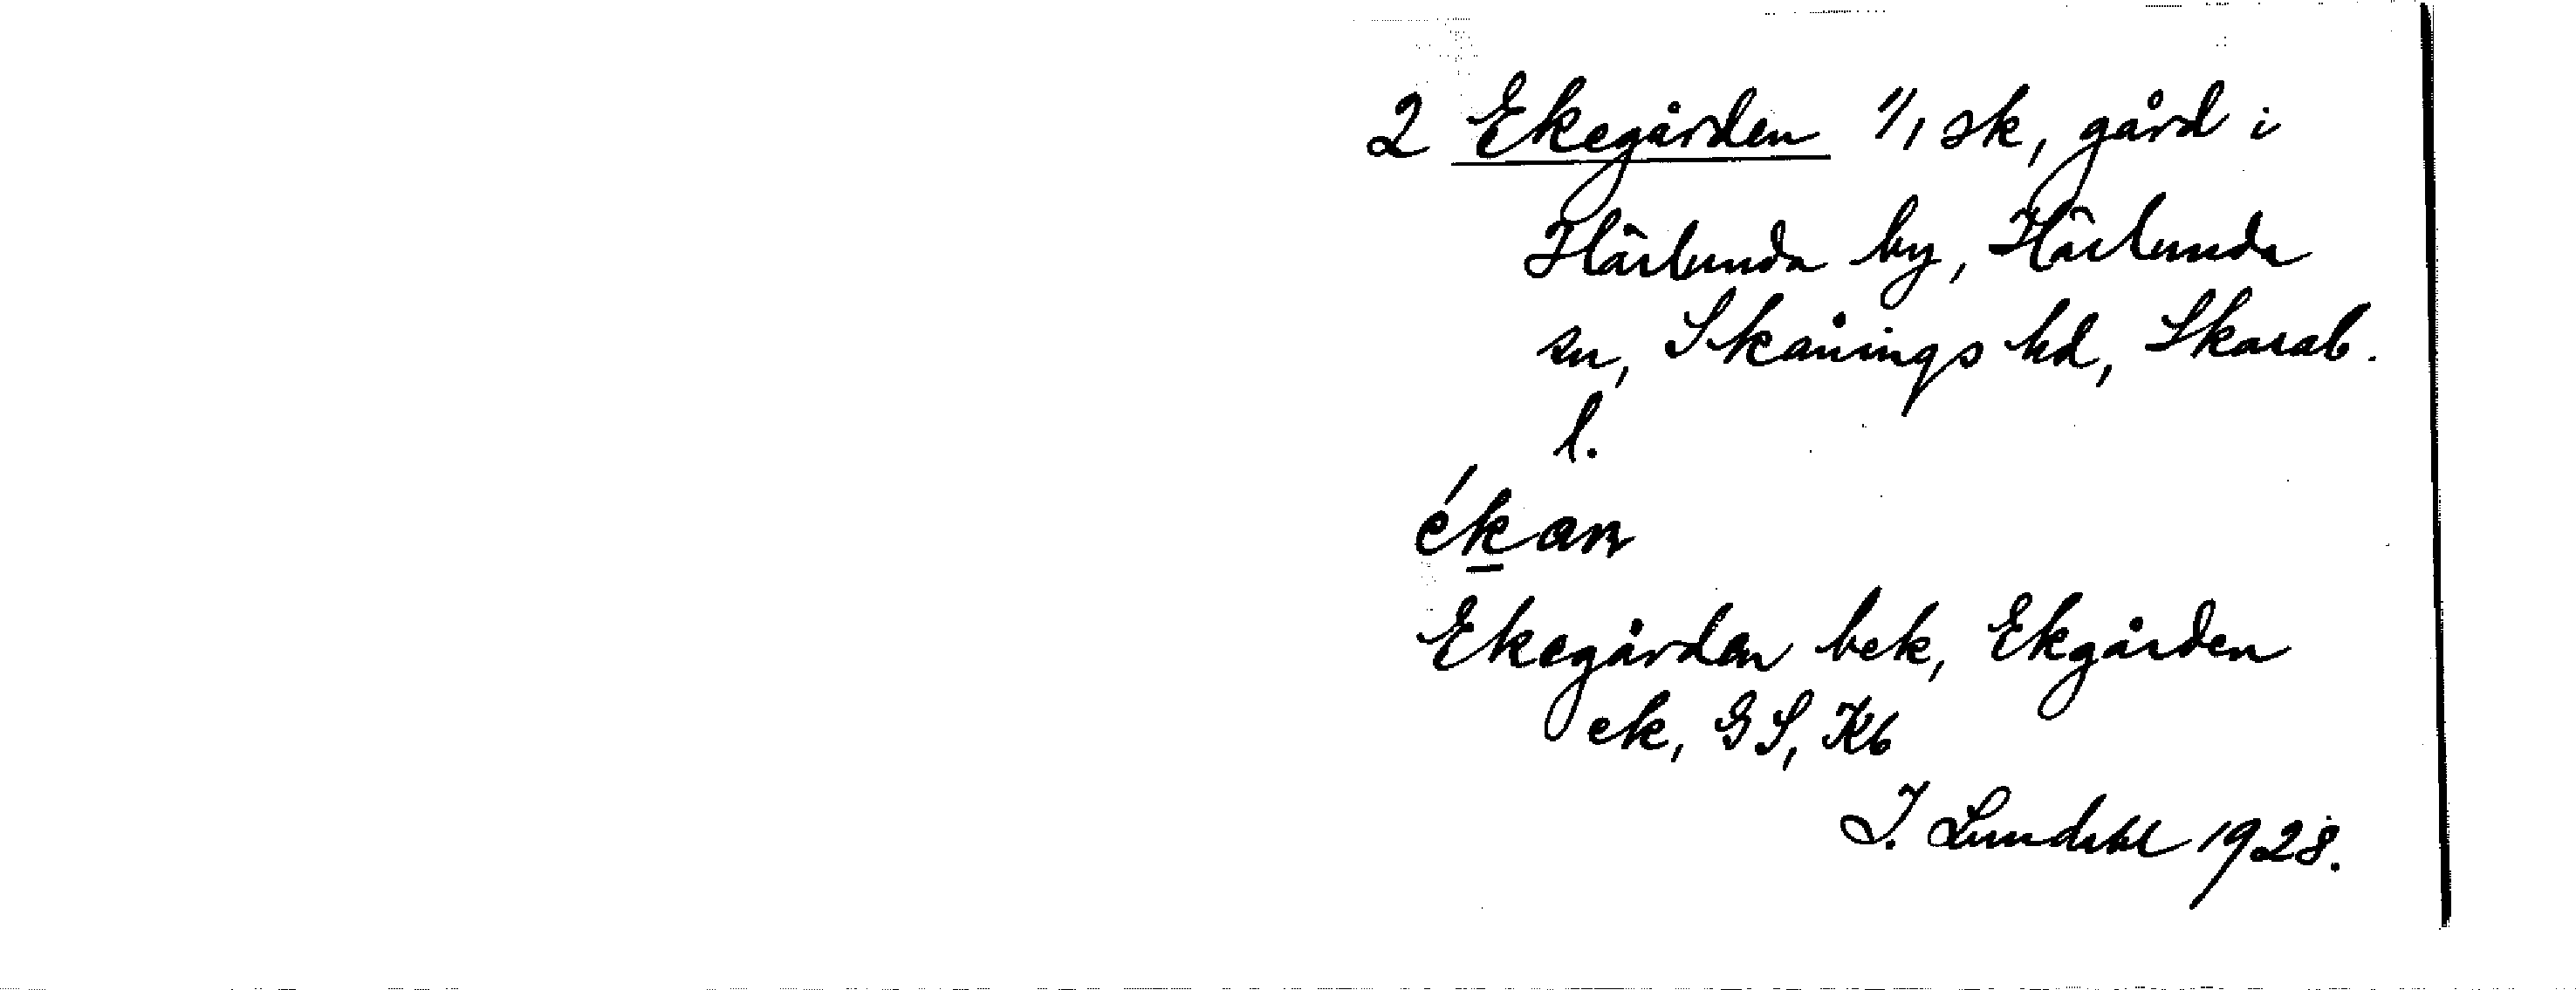 2 Ekegården 1/1 sk, gård i
Härlunda by, Härlunda
sn, Skånings hd, Skarab.
l.
ékan
Ekegården bek, Ekgården
ek, GS, Kb
I. Lundahl 1928.